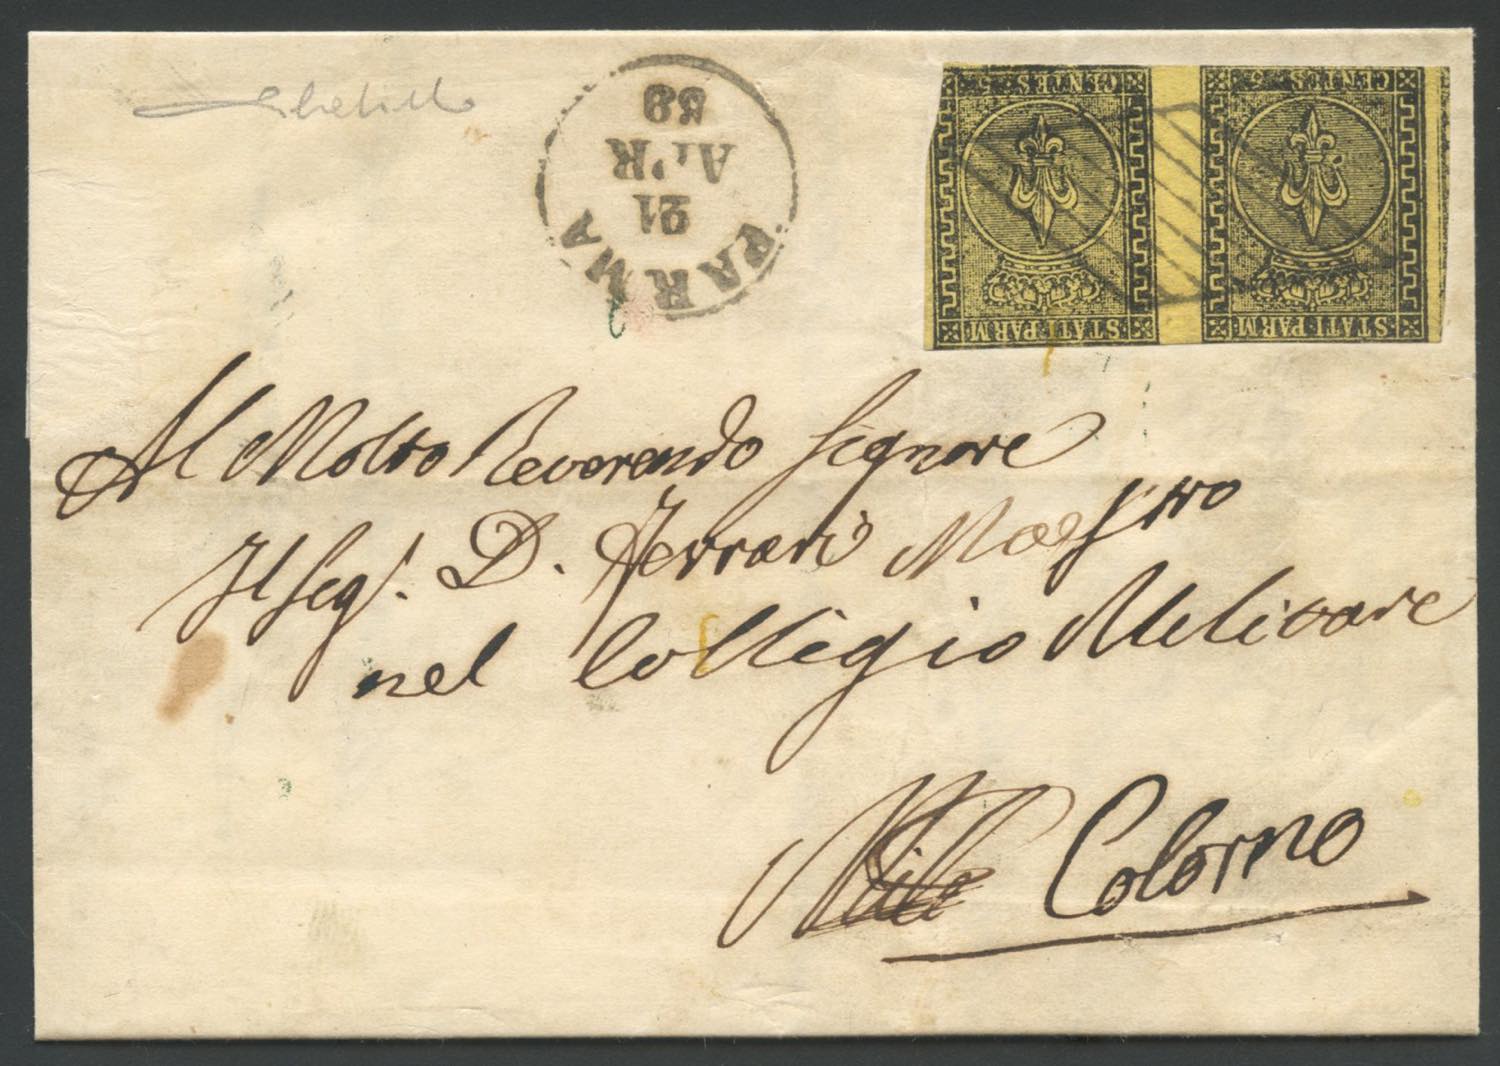 CENTES. 5 CENTES. 5
STATI PARM STATI PARM
PARMA
21
APR
58
Al Molto Reverendo Signore
Il Sigr. D. Ferrari Maestro
nel Collegio Melitare
Colorno